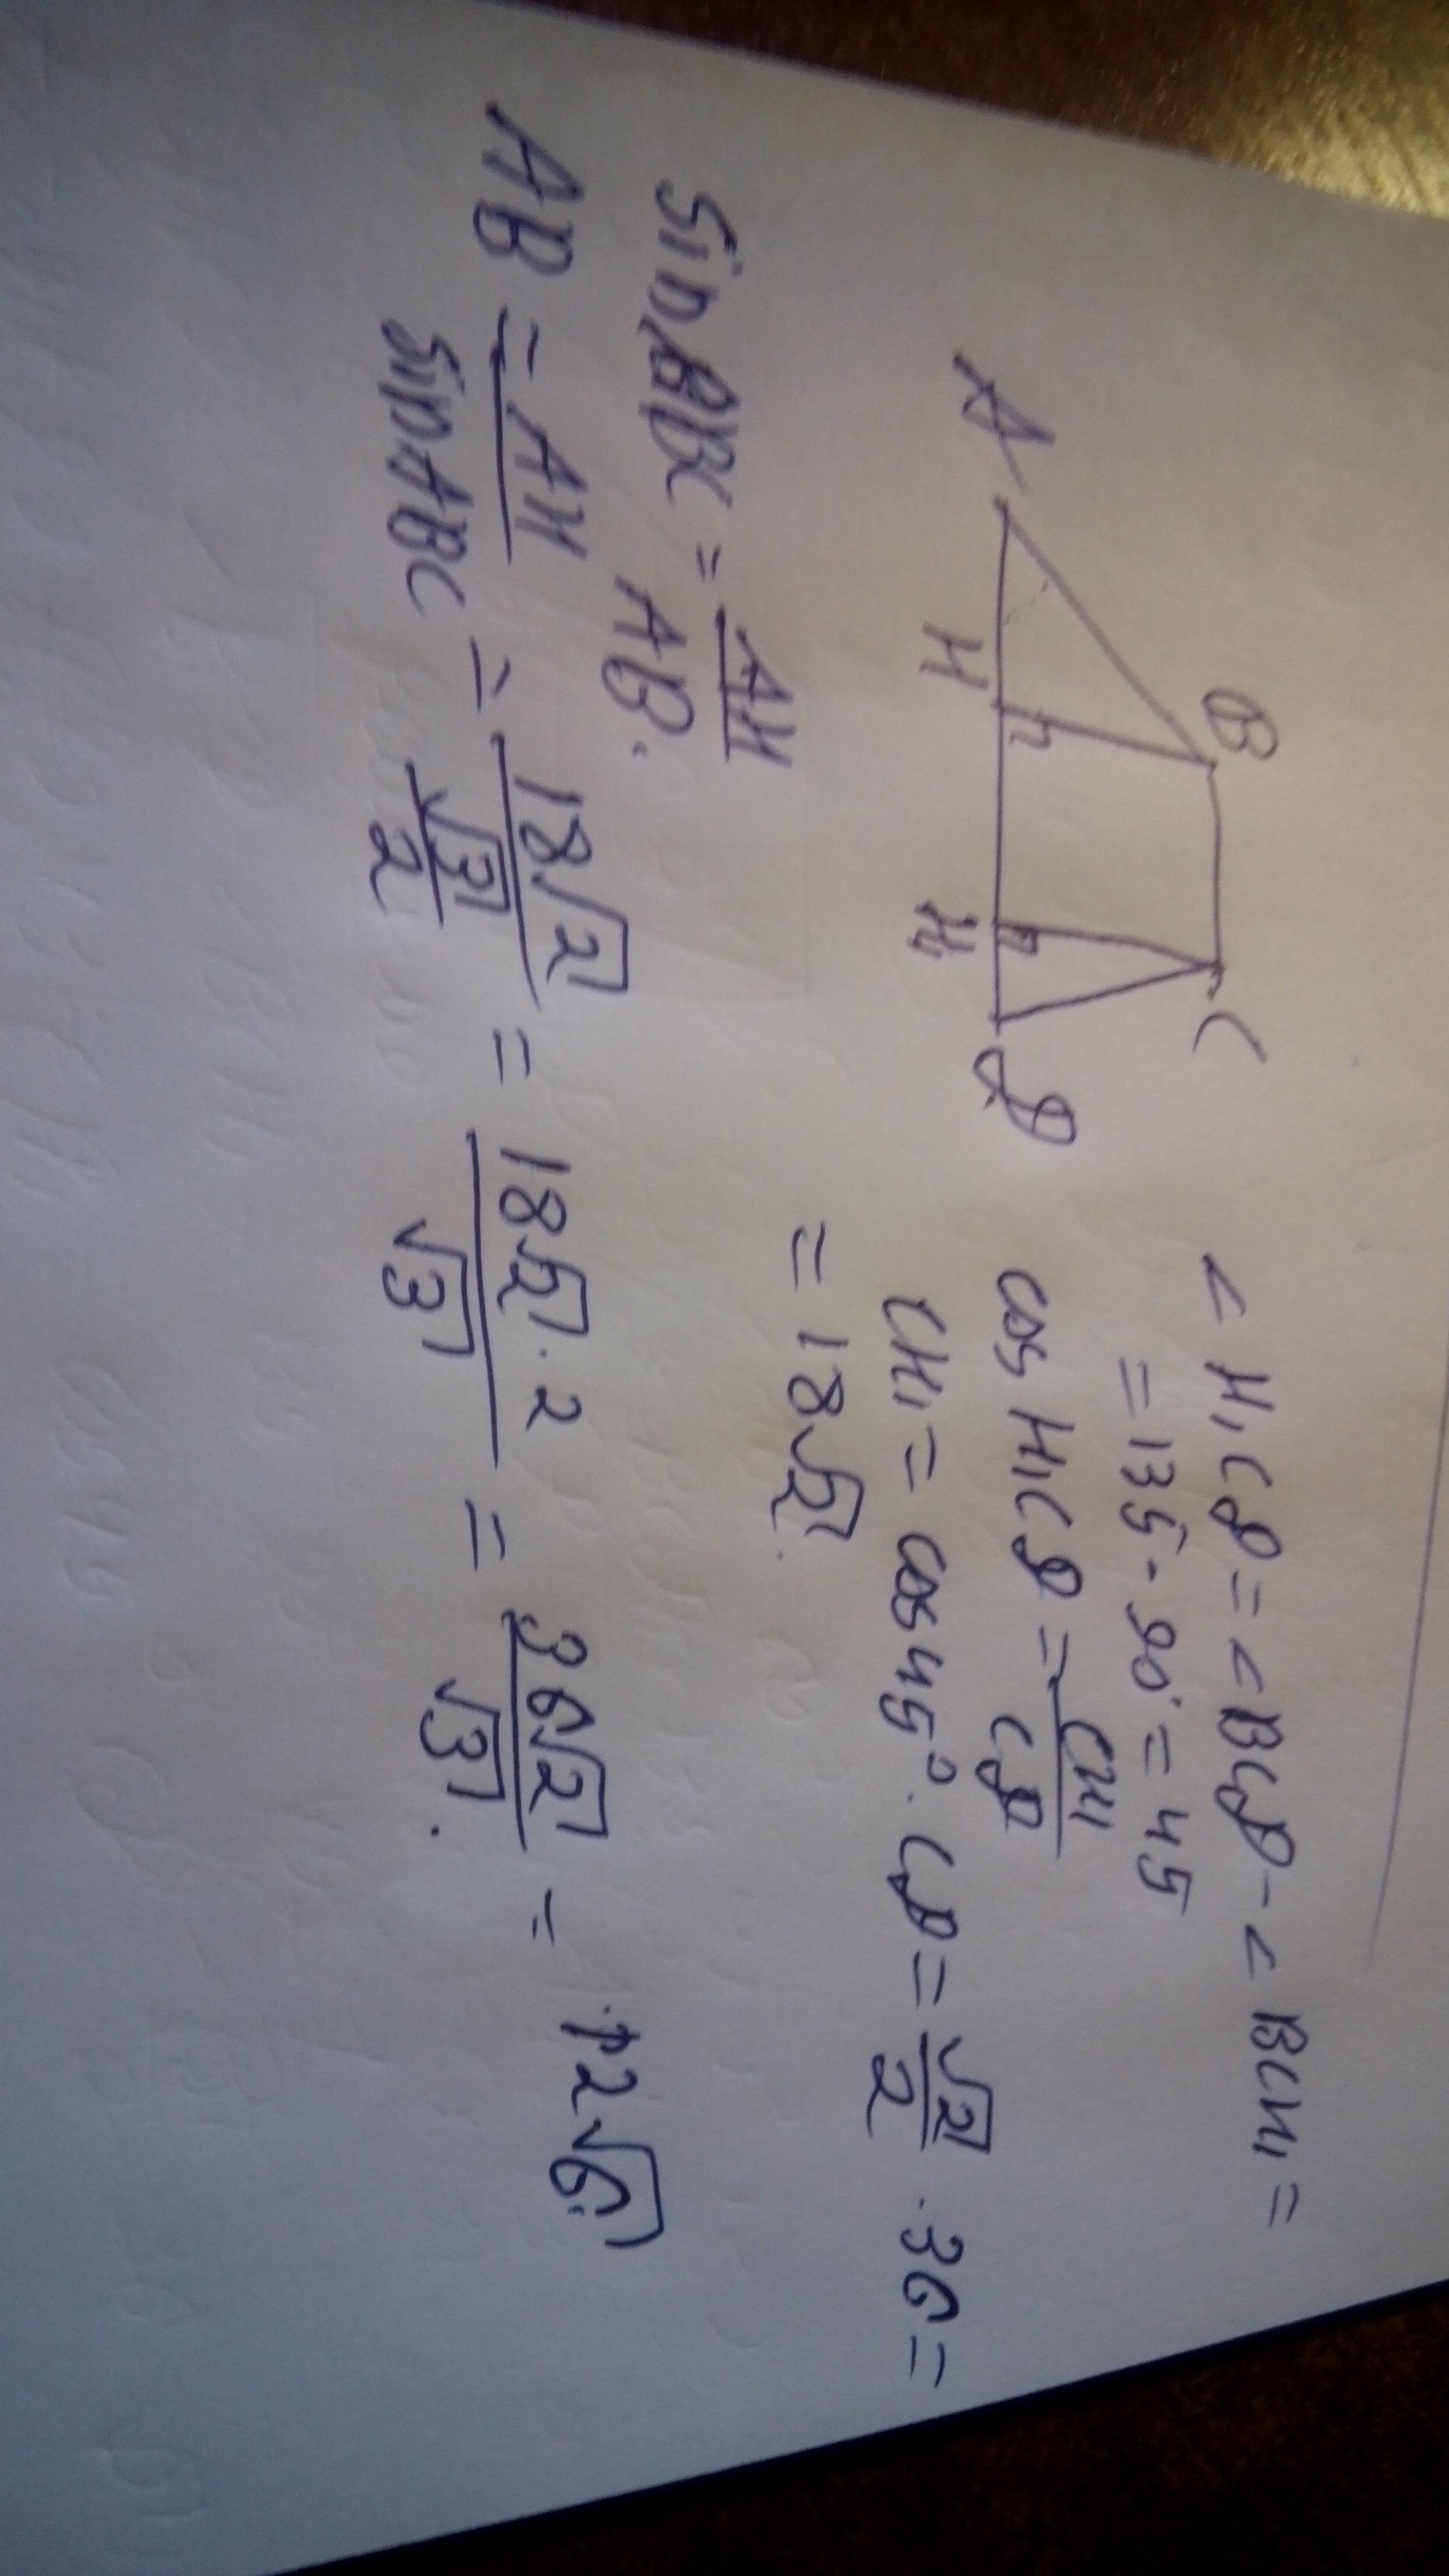 B C
A H H₁ D
< H₁CD = < BCD - < BCH₁ =
= 135 - 90° = 45
cos H₁CD = CH₁/CD
CH₁ = cos 45° · CD = √2/2 · 36 =
= 18√2.
sin ABC = AH/AB.
AB = AH/sin ABC = 18√2/(√3/2) = 18√2 · 2/√3 = 36√2/√3. = 12√6